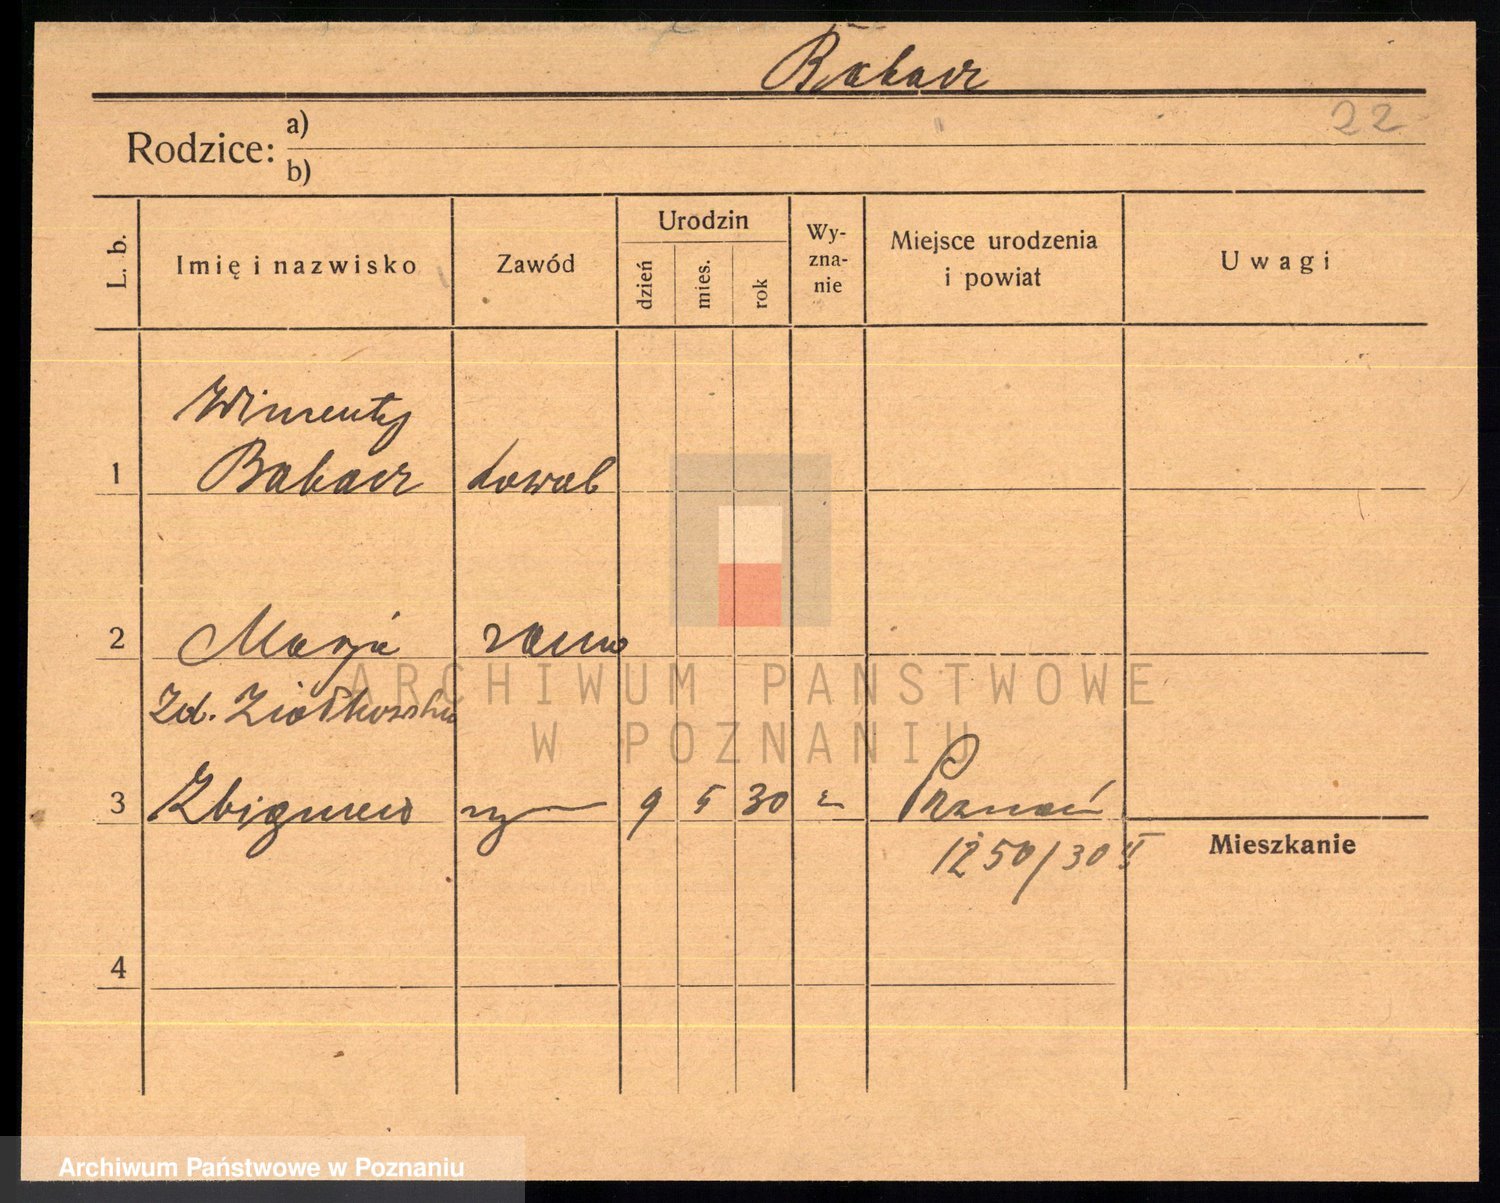 Babacz
22
Rodzice: a)
b)
L. b.
Imię i nazwisko
Zawód
Urodzin
dzień
mies.
rok
Wy-
zna-
nie
Miejsce urodzenia
i powiat
Uwagi
Wincenty
1 Babacz kowal
2 Marja
zd. Ziółkowska
3 Zbigniew 9 5 30 Poznań
1250/30 II
Mieszkanie
4
ARCHIWUM PAŃSTWOWE
W POZNANIU
Archiwum Państwowe w Poznaniu